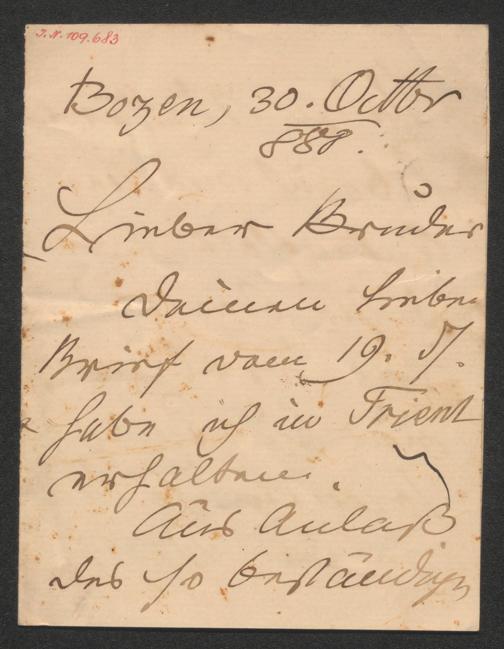 J.N. 109.683
Bozen, 30. Octbr
888.
Lieber Bruder
Deinen lieben
Brief vom 19. d.
habe ich in Trient
erhalten.
Aus Anlaß
des so beständigen